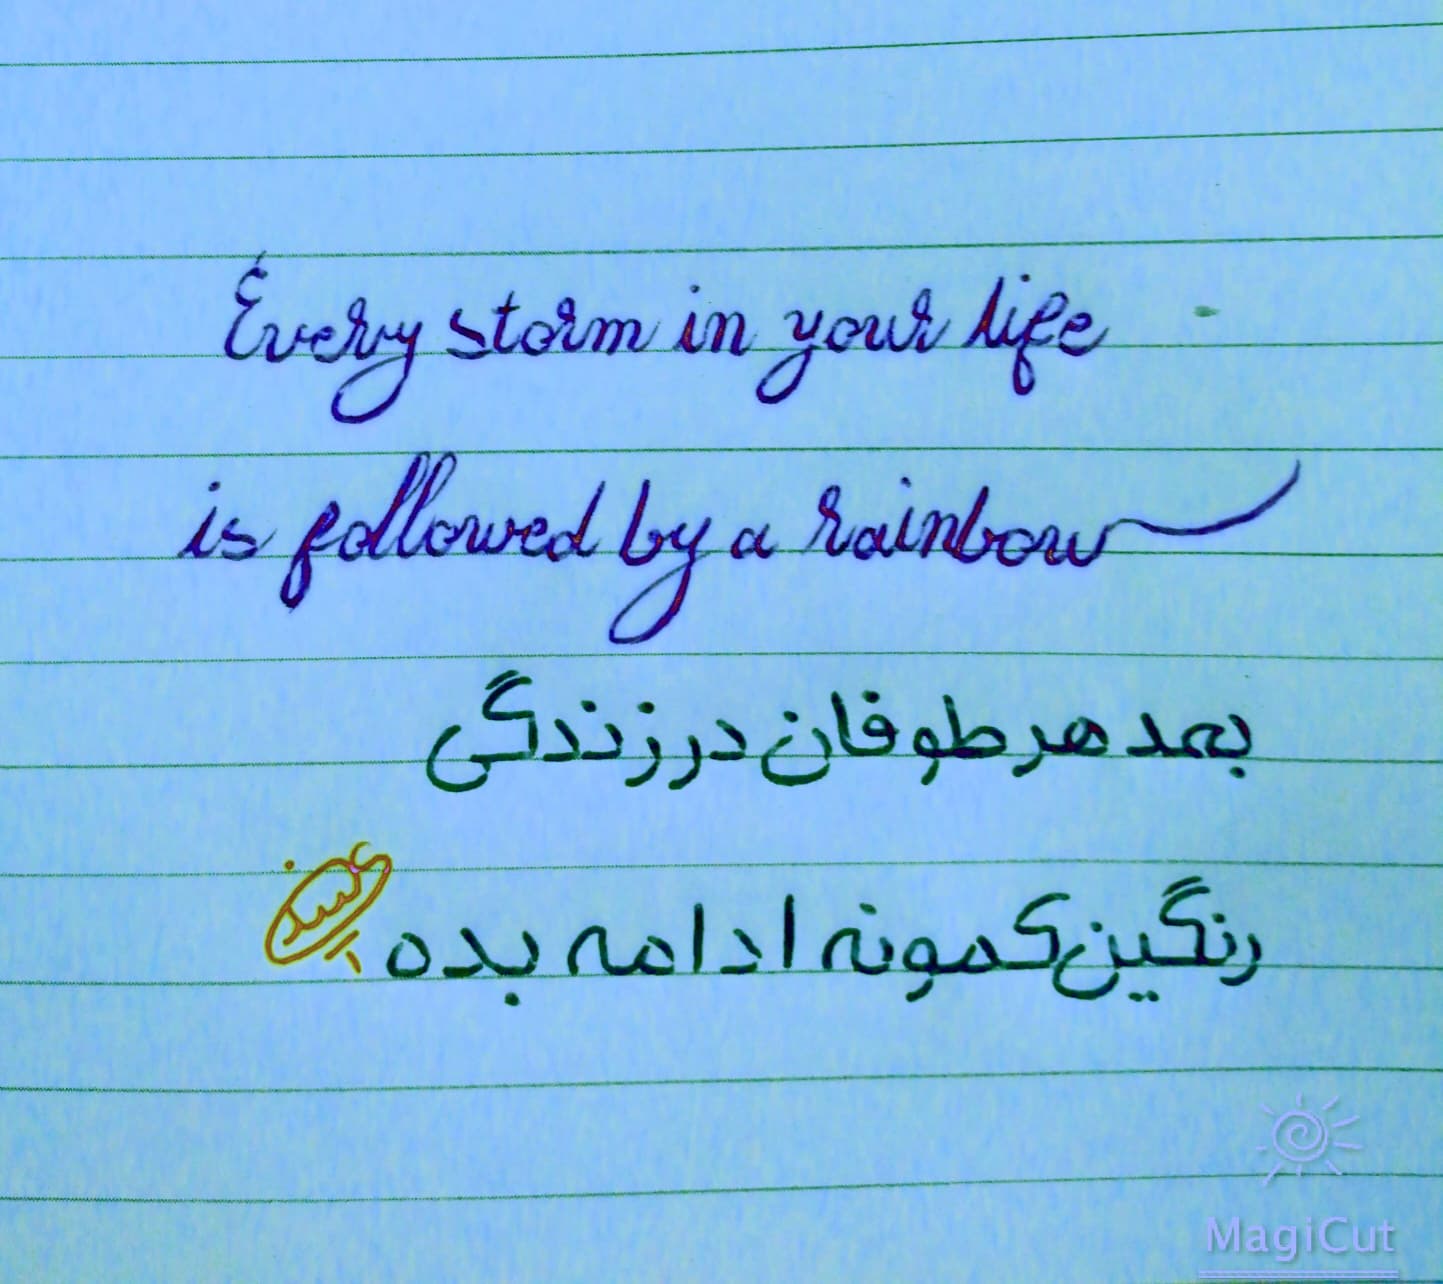 Every storm in your life
is followed by a rainbow
بعد هر طوفان در زندگی
رنگین کمونه ادامه بده
MagiCut